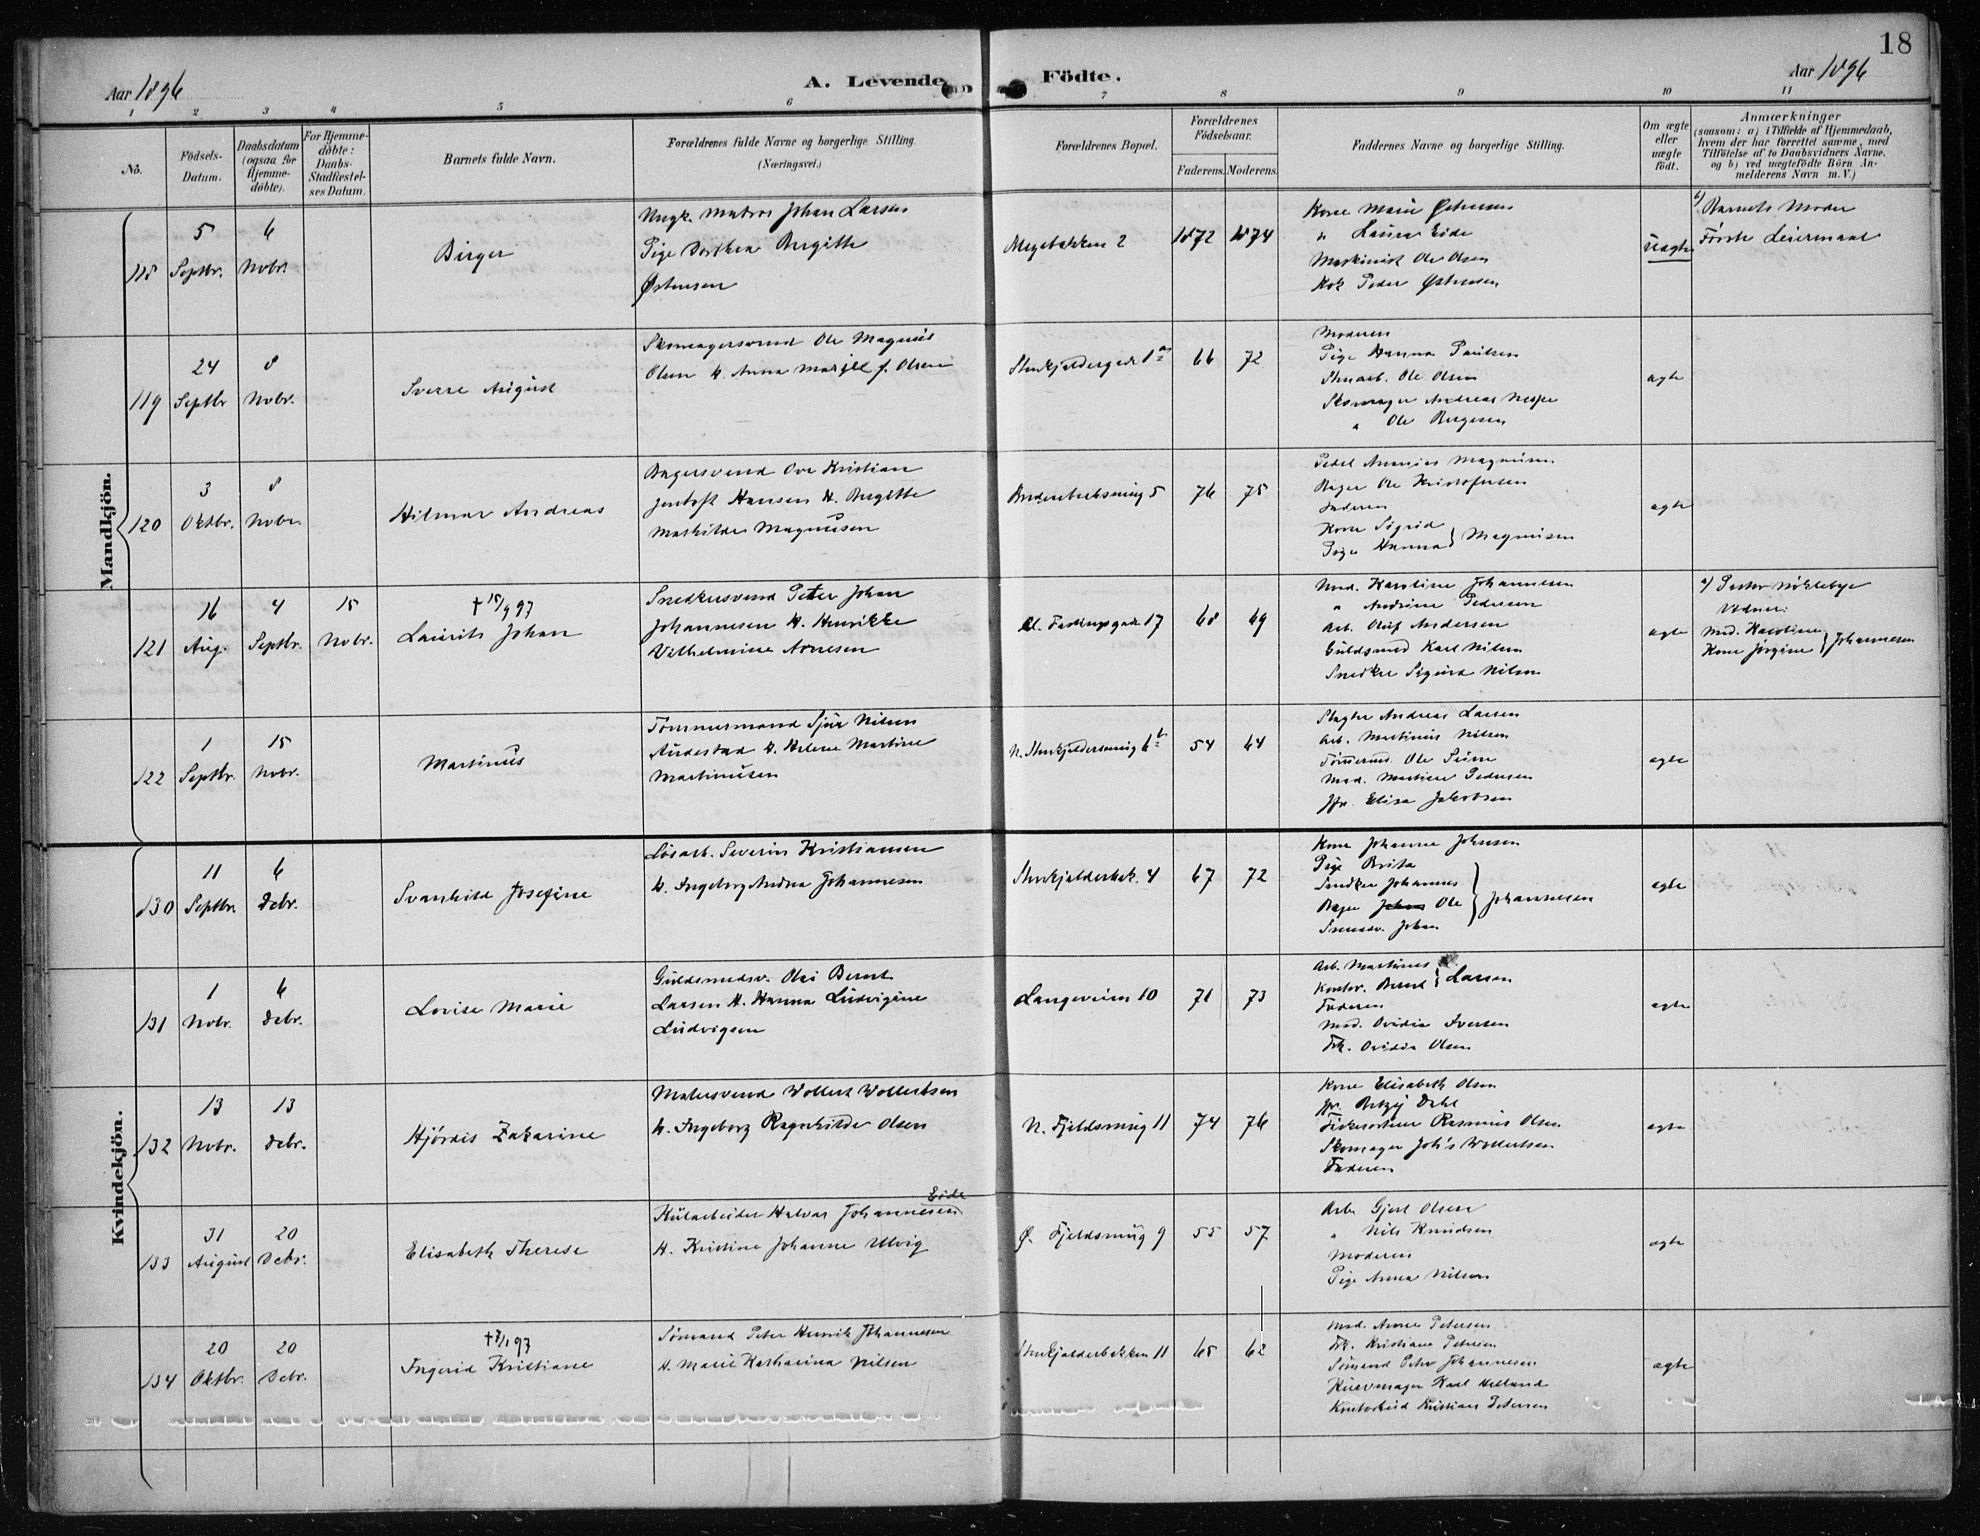 18
Aar 1896
A. Levende Födte.
Aar 1896
1 2 3 4 5 6 7 8 9 10 11
No.
Födsels-
Datum.
Daabsdatum
(ogsaa for
Hjemme-
döbte).
For Hjemme-
döbte:
Daabs-
Stadfæstel-
ses Datum.
Barnets fulde Navn.
Forældrenes fulde Navne og borgerlige Stilling.
(Næringsvei.)
Forældrenes Bopæl.
Forældrenes
Födselsaar.
Faderens. Moderens.
Faddernes Navne og borgerlige Stilling.
Om ægte
eller
uægte
födt.
Anmærkninger
(saasom: a) i Tilfælde af Hjemmedaab,
hvem der har forrettet samme, med
Tilföielse af to Daabsvidners Navne.
og b) ved uægtefödte Börn An-
melderens Navn m. V.)
Mandkjön.
118
5
Septbr.
6
Novbr.
Birger
Ungk. Matros Johan Larsen
Pige Dorthea Bergitte
Østensen
2
1872
1874
Kone Marie Østensen
" Laura Eide
Maskinist Ole Olsen
Kok Peder Østensen
Uægte
b) Barnets Moder
Første Leiermaal
119
24
Septbr
8
Novbr.
Sverre August
Skomagersvend Ole Magnus
Olsen H. Anna f. Olsen
66
72
Moderen
Pige Hanna Paulsen
Ole Olsen
Skomager Andreas
" Ole Bergesen
ægte
120
3
Oktbr.
8
Novbr.
Hilmar Andreas
Bagersvend Ove Kristian
Jentoft Hansen H. Bergitte
Mathilde Magnusen
5
76
75
Magnusen
Bager Ole Kristofersen
Faderen
Kone Sigrid
Pige Hanna } Magnusen
ægte
121
16
Aug.
4
Septbr.
15
Novbr.
† 15/9 97
Laurits Johan
Snedkersvend Peter Johan
Johannesen H. Henrikke
Vilhelmine Arnesen
17
68
69
Mad. Karoline Johannesen
" Andrine Pedersen
Arb. Oluf Andersen
Guldsmed Karl Nilsen
Snedker Sigurd Nilsen
ægte
a) Pastor Nøklebye
Vidner:
Mad. Karoline
Kone Jørgine } Johannesen
122
1
Septbr.
15
Novbr.
Martinus
Tømmermand Sjur Nilsen
H. Helene Martine
Martinusen
54
64
Slagter Andreas Larsen
Arb. Martinus Nilsen
Ole
Mad. Martine Pedersen
Jfr. Elisa Jakobsen
ægte
Kvindekjön.
130
11
Septbr.
6
Debr.
Svanhild Josefine
Løsarb. Severin Kristiansen
H. Ingeborg Andrea Johannesen
4
67
72
Kone Johanne Johnsen
Pige Brita
Snedker Johannes
Bager Ole
Johan } Johannesen
ægte
131
1
Novbr.
6
Debr.
Lovise Marie
Guldsmedsv. Olai Bernt
Larsen H. Hanna Ludvigine
Ludvigsen
Langeveien 10
71
73
Arb. Martinus
Kontor. Bernt } Larsen
Faderen
Mad. Ovidia Iversen
Frk. Ovidia Olsen
ægte
132
13
Novbr.
13
Debr.
Hjørdis Zakarine
Malersvend Wollert Wollertsen
H. Ingeborg Ragnhilde Olsen
N. Fjeldsmug 11
74
76
Kone Elisabeth Olsen
Jfr. Betzy Dahl
Rasmus Olsen
Skomager Joh's Wollertsen
Faderen
ægte
133
31
August
20
Debr.
Elisabeth Therese
Eide
Kularbeider Halvor Johannesen
H. Kristine Johanne Ulvig
Ø. Fjeldsmug 9
55
57
Arb. Gjert Olsen
" Nils Knudsen
Moderen
Pige Anna Nilsen
ægte
134
20
Oktbr.
20
Debr.
† 97
Ingerid Kristiane
Sømand Peter Henrik Johannesen
H. Marie Katharina Nilsen
Stenkjælderbakken 11
65
62
Mad. Anne Petersen
Frk. Kristiane Petersen
Sømand Peter Johannesen
Karl Helland
Kristian Petersen
ægte